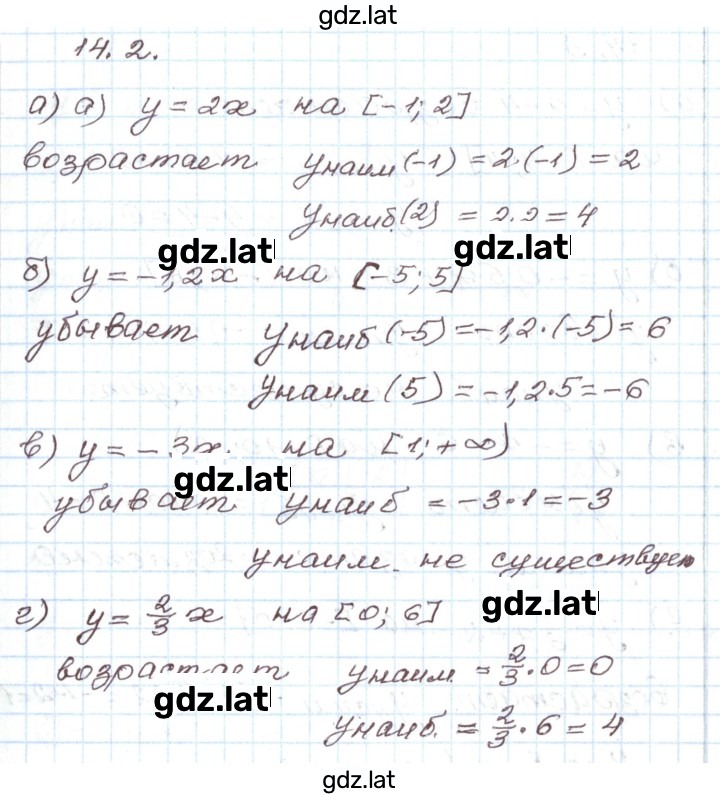 gdz.lat
14.2.
а) а) y = 2x на [-1; 2]
возрастает yнаим(-1) = 2·(-1) = 2
yнаиб(2) = 2·2 = 4
gdz.lat gdz.lat
б) y = -1,2x на [-5; 5]
убывает yнаиб(-5) = -1,2·(-5) = 6
yнаим(5) = -1,2·5 = -6
в) y = -3x. на [1; +∞)
gdz.lat
убывает yнаиб = -3·1 = -3
yнаим. не существует
г) y = 2/3 x на [0; 6]
gdz.lat
возрастает yнаим. = 2/3 · 0 = 0
gdz.lat
yнаиб. = 2/3 · 6 = 4
gdz.lat